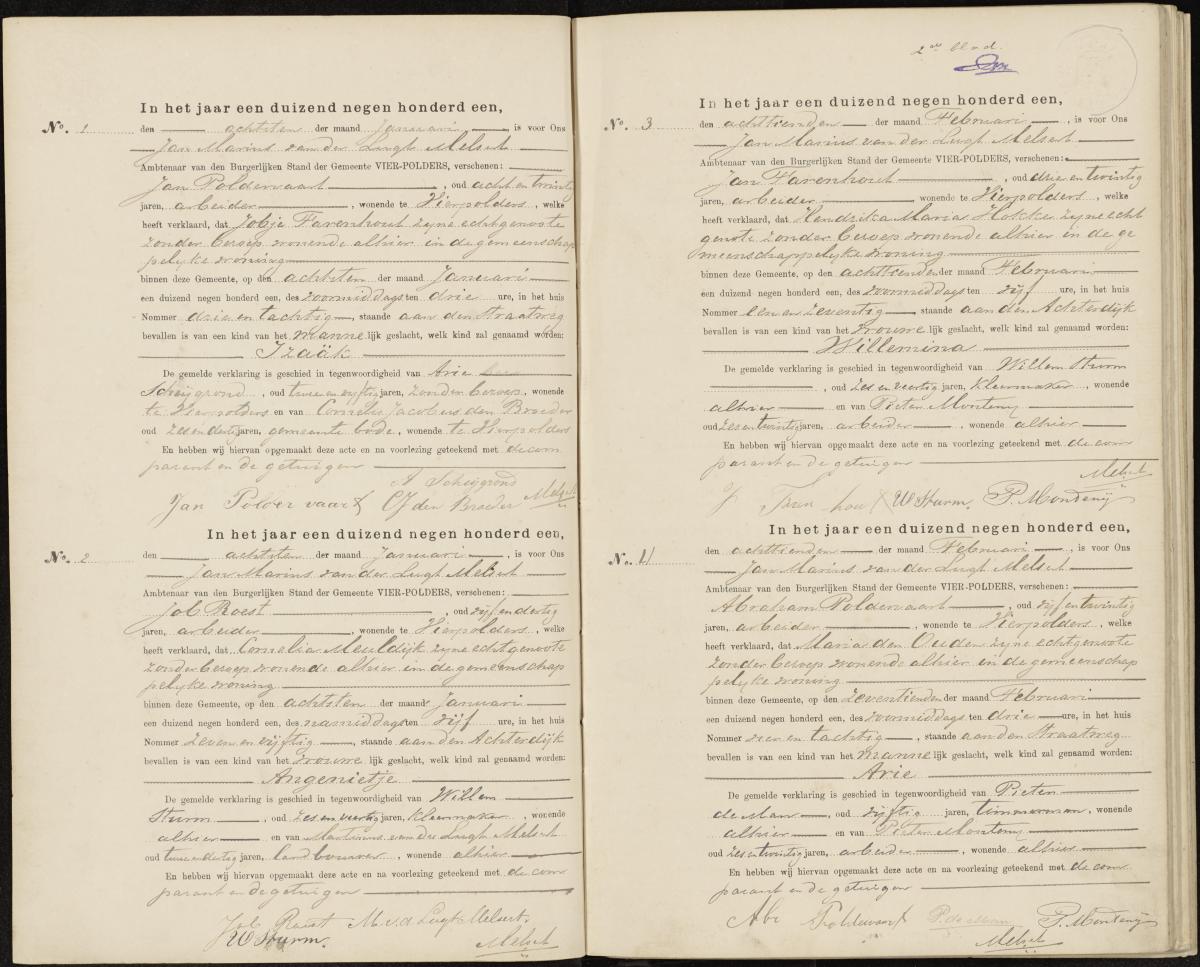 In het jaar een duizend negen honderd een,
No. 1 den achtsten der maand Januari, is voor Ons
Jan Marius van der Lugt Melsert
Ambtenaar van den Burgerlijken Stand der Gemeente VIER-POLDERS, verschenen:
Jan Poldervaart, oud acht en twintig
jaren, arbeider, wonende te Vierpolders, welke
heeft verklaard, dat Jobje Farenhout zyne echtgenoote
zonder beroep wonende alhier in de gemeenschap
pelyke woning
binnen deze Gemeente, op den achtsten der maand Januari
een duizend negen honderd een, des voormiddags ten drie ure, in het huis
Nommer drie en tachtig, staande aan den Straatweg
bevallen is van een kind van het mannelijk geslacht, welk kind zal genaamd worden:
Izaäk
De gemelde verklaring is geschied in tegenwoordigheid van Arie
Scheijgrond, oud twee en vyftig jaren, zonder beroep, wonende
te Vierpolders en van Cornelis Jacobus den Breeder
oud zes en dertig jaren, gemeente bode, wonende te Vierpolders
En hebben wij hiervan opgemaakt deze acte en na voorlezing geteekend met de com
parant en de getuigen
A Scheijgrond
Jan Poldervaart CJ den Breeder Melsert
In het jaar een duizend negen honderd een,
No. 2 den achtsten der maand Januari, is voor Ons
Jan Marius van der Lugt Melsert
Ambtenaar van den Burgerlijken Stand der Gemeente VIER-POLDERS, verschenen:
Job Roest, oud vijf en dertig
jaren, arbeider, wonende te Vierpolders, welke
heeft verklaard, dat Cornelia Meuldijk zyne echtgenoote
zonder beroep wonende alhier in de gemeenschap
pelyke woning
binnen deze Gemeente, op den achtsten der maand Januari
een duizend negen honderd een, des namiddags ten vijf ure, in het huis
Nommer zeven en vijftig, staande aan den Achterdijk
bevallen is van een kind van het vrouwelijk geslacht, welk kind zal genaamd worden:
Angenietje
De gemelde verklaring is geschied in tegenwoordigheid van Willem
Sturm, oud zes en veertig jaren, kleermaker, wonende
alhier en van Marinus van der Lugt Melsert
oud twee en dertig jaren, landbouwer, wonende alhier
En hebben wij hiervan opgemaakt deze acte en na voorlezing geteekend met de com
parant en de getuigen
Job Roest M. v. d. Lugt Melsert.
W Sturm. Melsert
2de blad.
In het jaar een duizend negen honderd een,
No. 3 den achttienden der maand Februari, is voor Ons
Jan Marius van der Lugt Melsert
Ambtenaar van den Burgerlijken Stand der Gemeente VIER-POLDERS, verschenen:
Jan Farenhout, oud drie en twintig
jaren, arbeider wonende te Vierpolders, welke
heeft verklaard, dat Hendrika Maria Hokke zyne echt
genote zonder beroep wonende alhier in de ge
meenschappelyke woning
binnen deze Gemeente, op den achttienden der maand Februari
een duizend negen honderd een, des voormiddags ten vijf ure, in het huis
Nommer een en zeventig, staande aan den Achterdijk
bevallen is van een kind van het vrouwelijk geslacht, welk kind zal genaamd worden:
Willemina
De gemelde verklaring is geschied in tegenwoordigheid van Willem Sturm
, oud zes en veertig jaren, kleermaker, wonende
alhier en van Pieter Monteny
oud zes en twintig jaren, arbeider, wonende alhier
En hebben wij hiervan opgemaakt deze acte en na voorlezing geteekend met de com
parant en de getuigen
Melsert
W Sturm. P. Montenij
In het jaar een duizend negen honderd een,
No. 4 den achttienden der maand Februari, is voor Ons
Jan Marius van der Lugt Melsert
Ambtenaar van den Burgerlijken Stand der Gemeente VIER-POLDERS, verschenen:
Abraham Poldervaart, oud vijf en twintig
jaren, arbeider, wonende te Vierpolders, welke
heeft verklaard, dat Maria den Ouden zyne echtgenoote
zonder beroep wonende alhier in de gemeenschap
pelyke woning
binnen deze Gemeente, op den zeventienden der maand Februari
een duizend negen honderd een, des voormiddags ten drie ure, in het huis
Nommer vier en tachtig, staande aan den Straatweg
bevallen is van een kind van het mannelijk geslacht, welk kind zal genaamd worden:
Arie
De gemelde verklaring is geschied in tegenwoordigheid van Pieter
de Man, oud vijftig jaren, timmerman, wonende
alhier en van Pieter Monteny
oud zes en twintig jaren, arbeider, wonende alhier
En hebben wij hiervan opgemaakt deze acte en na voorlezing geteekend met de com
parant en de getuigen
Abr Poldervaart P. de Man P. Montenij
Melsert